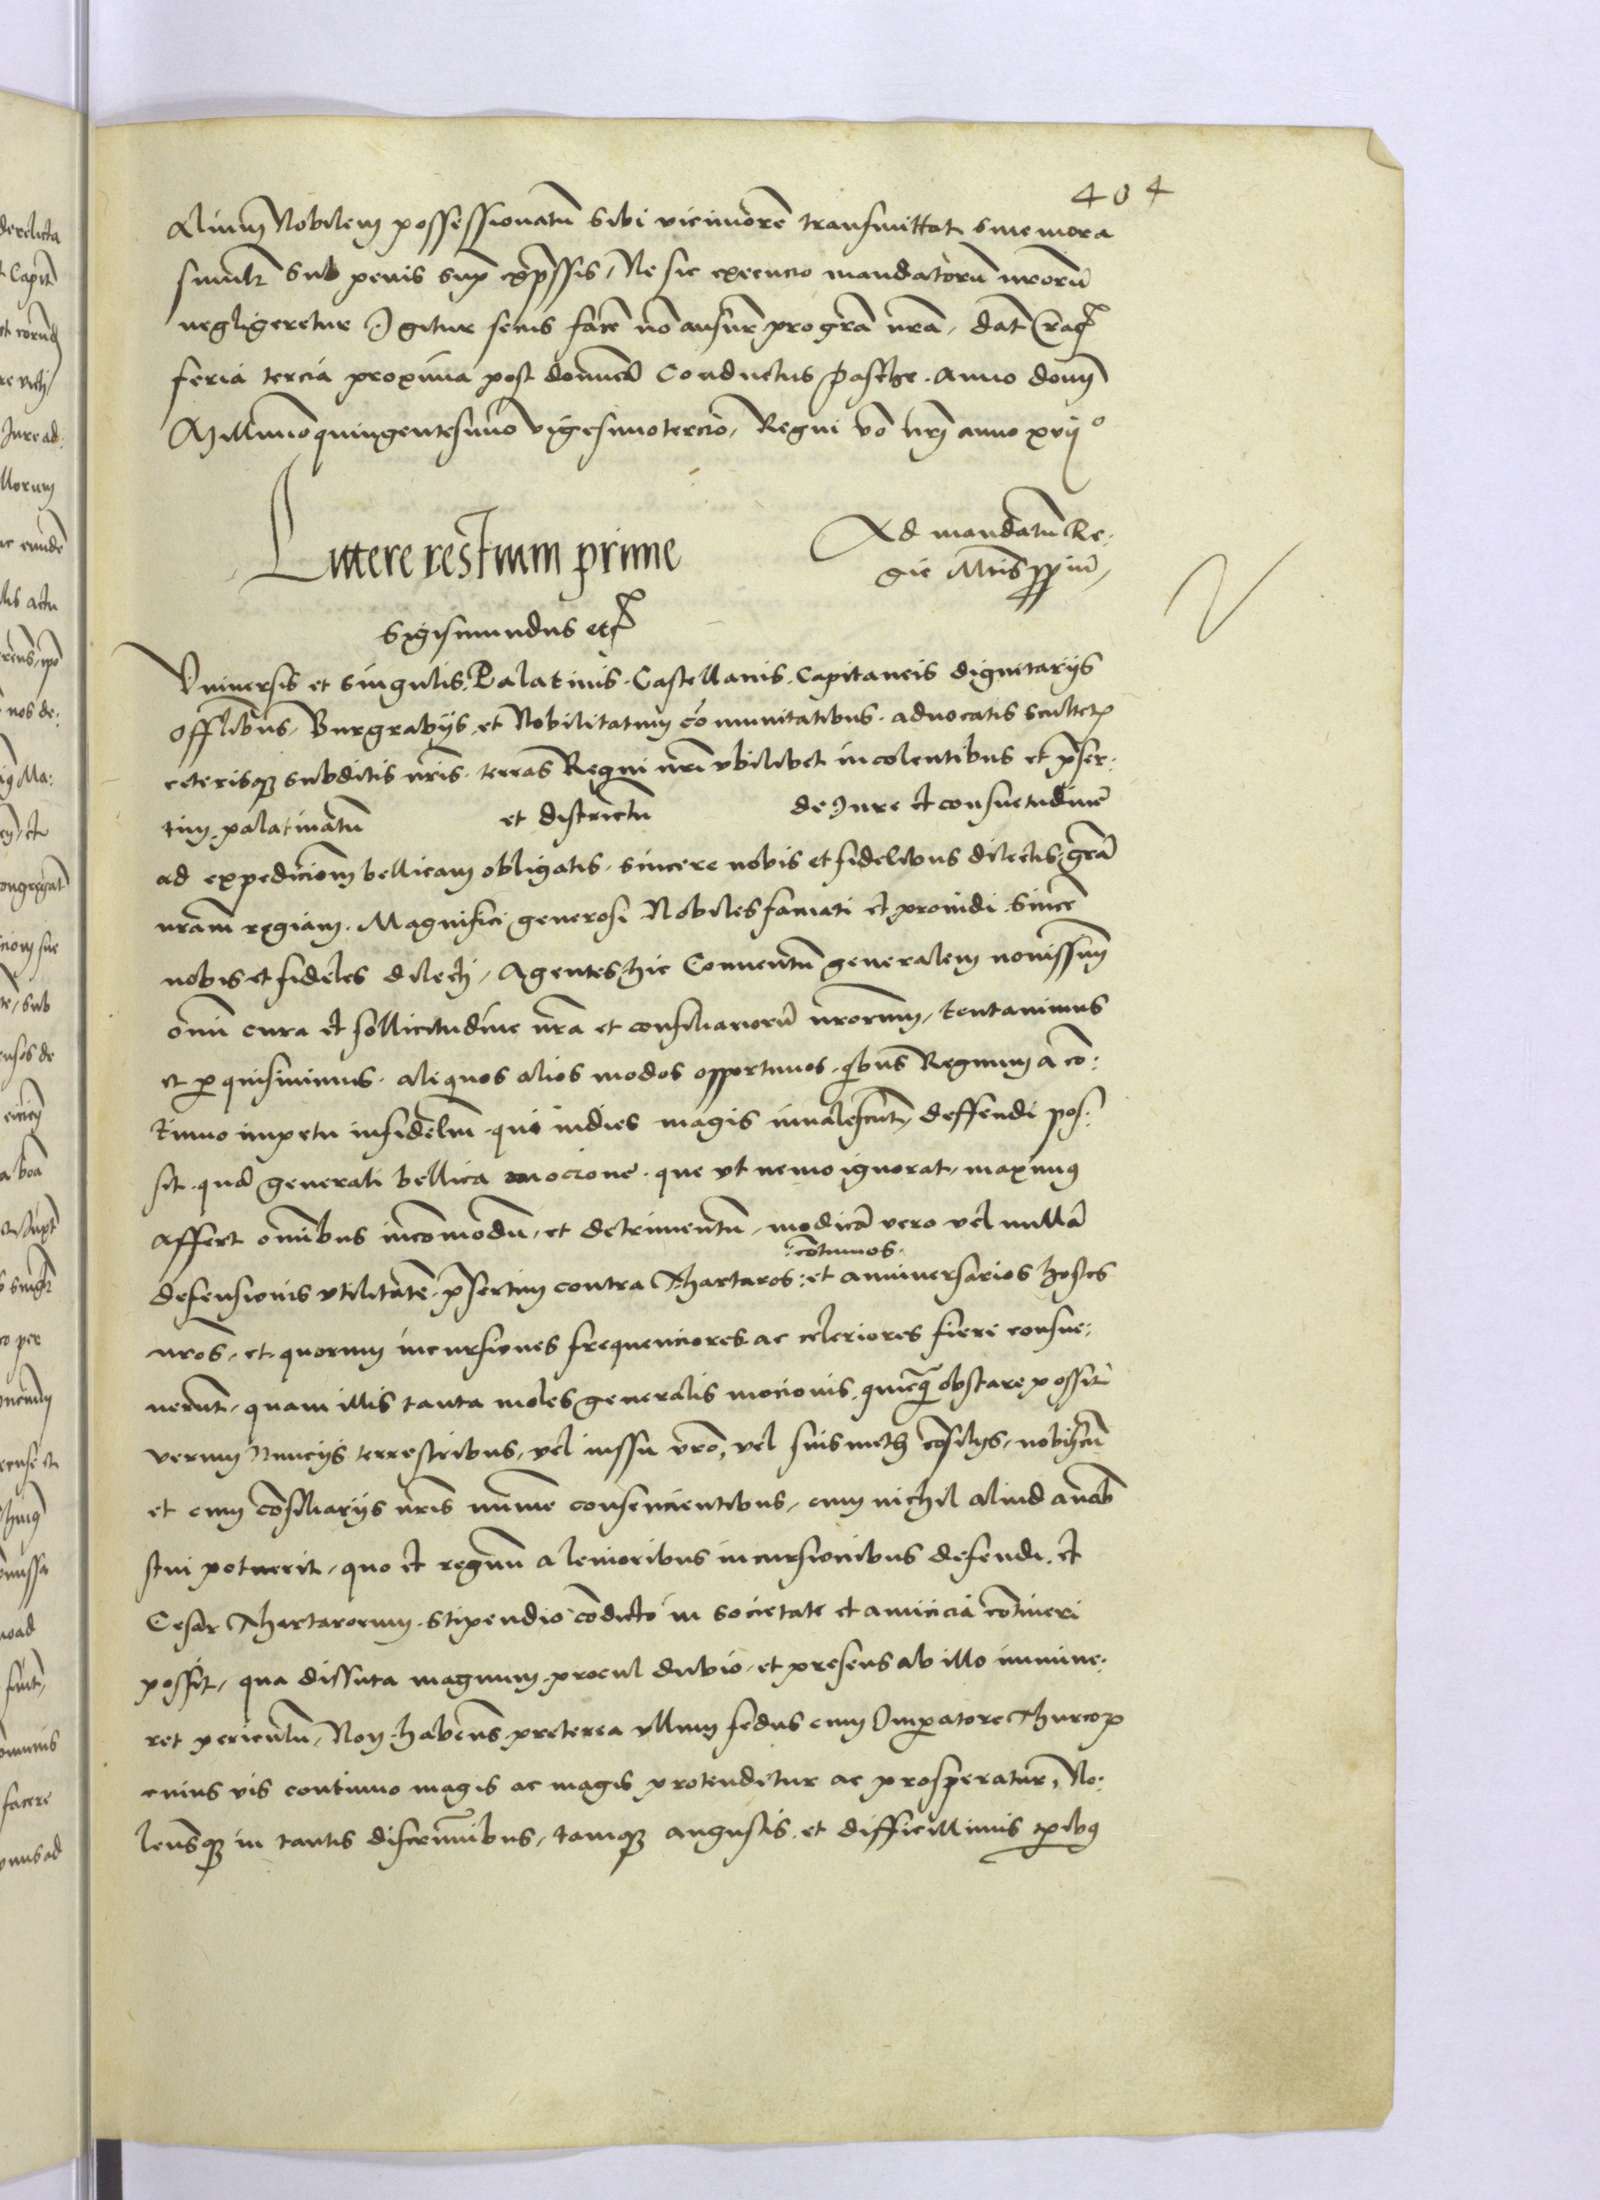 404
Alium Nobilem possessionatū sibi viciniorē transmittat, sine mora
similr sub penis sup exp̄ssis, Ne sic execucio mandatorū nrorū
negligeretur Igitur secus facē nō ausurj pro grā nrā, dat Crac
feria tercia proxima post domcā Conductus Pasche. Anno domj
Millimoquingentesimo vigesimotercio, Regni vō nrj anno xvij°
Ad mandatū Re:
gie Mtis ppriū,
Littere restium prime
Sigismundus etc
Vniuersis et singulis, Palatinis. Castellanis. Capitaneis dignitarijs
offlibus, Burgrabijs, et Nobilitatum cōmunitatibus. aduocatis scultet
ceterisqz subditis nris. terras Regni nri vbilibet incolentibus et p̄ser:
tim palatinatū et districtū de Jure et consuetudine
ad expedicionē bellicam obligatis. sincere nobis et fidelibus dilectis, grā
nram regiam. Magnifici generosi Nobiles famati et prouidi. sincē
nobis et fideles dilecti, Agentes hic Conuentū generalem nouissim
omī cura et sollicitudine nra et consiliariorū nrorum, tentauimus
et perquisiuimus. aliquos alios modos opportunos. qbus Regnum a cō:
tinuo impetu infidelium. qui indies magis inualescunt, deffendi pos:
sit. quā generali bellica mocione. que vt nemo ignorat, maximū
affert omībus incōmodū, et detrimentū, modicā vero vel nullā
:cōtinuos.
defensionis vtilitatē. p̄sertim contra Thartaros: et anniuersarios hostes
nros, et quorum incursiones frequenciores ac celeriores fieri consue:
uerūt, quam illis tanta moles generalis mocionis. quicqā obstare possit
verum Nuncijs terrestribus, vel iussu vro, vel suismeth cōsilijs, nobiscū
et cum cōsiliarijs nris minime consencientibus, cum nichil aliud
stui potuerit, quo et regnū a leuioribus incursionibus defendi, et
Cesar Thartarorum. stipendio cōdicto in societate et amicicia cōtineri
possit, qua dissuta magnum, procul dubio, et presens ab illo immine:
ret periculū, Non habens preterea vllum fedus cum Imperatore Thurcor
cuius vis continuo magis ac magis protenditur ac prosperatur, No:
lensqz in tantis discriminibus, tamqz angustis. et difficillimis tpibus